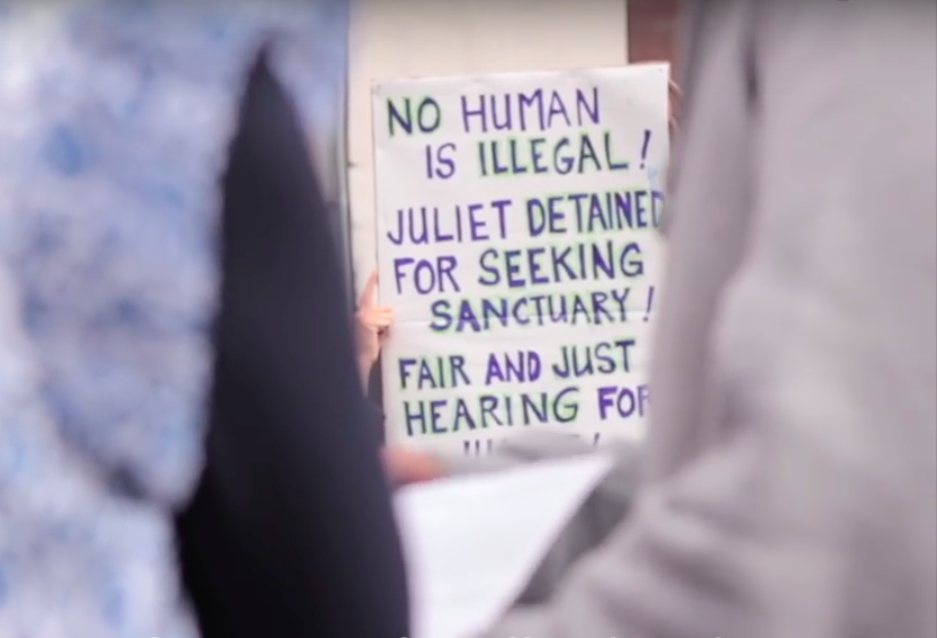 NO HUMAN
IS ILLEGAL!
JULIET DETAINED
FOR SEEKING
SANCTUARY!
FAIR AND JUST
HEARING FOR